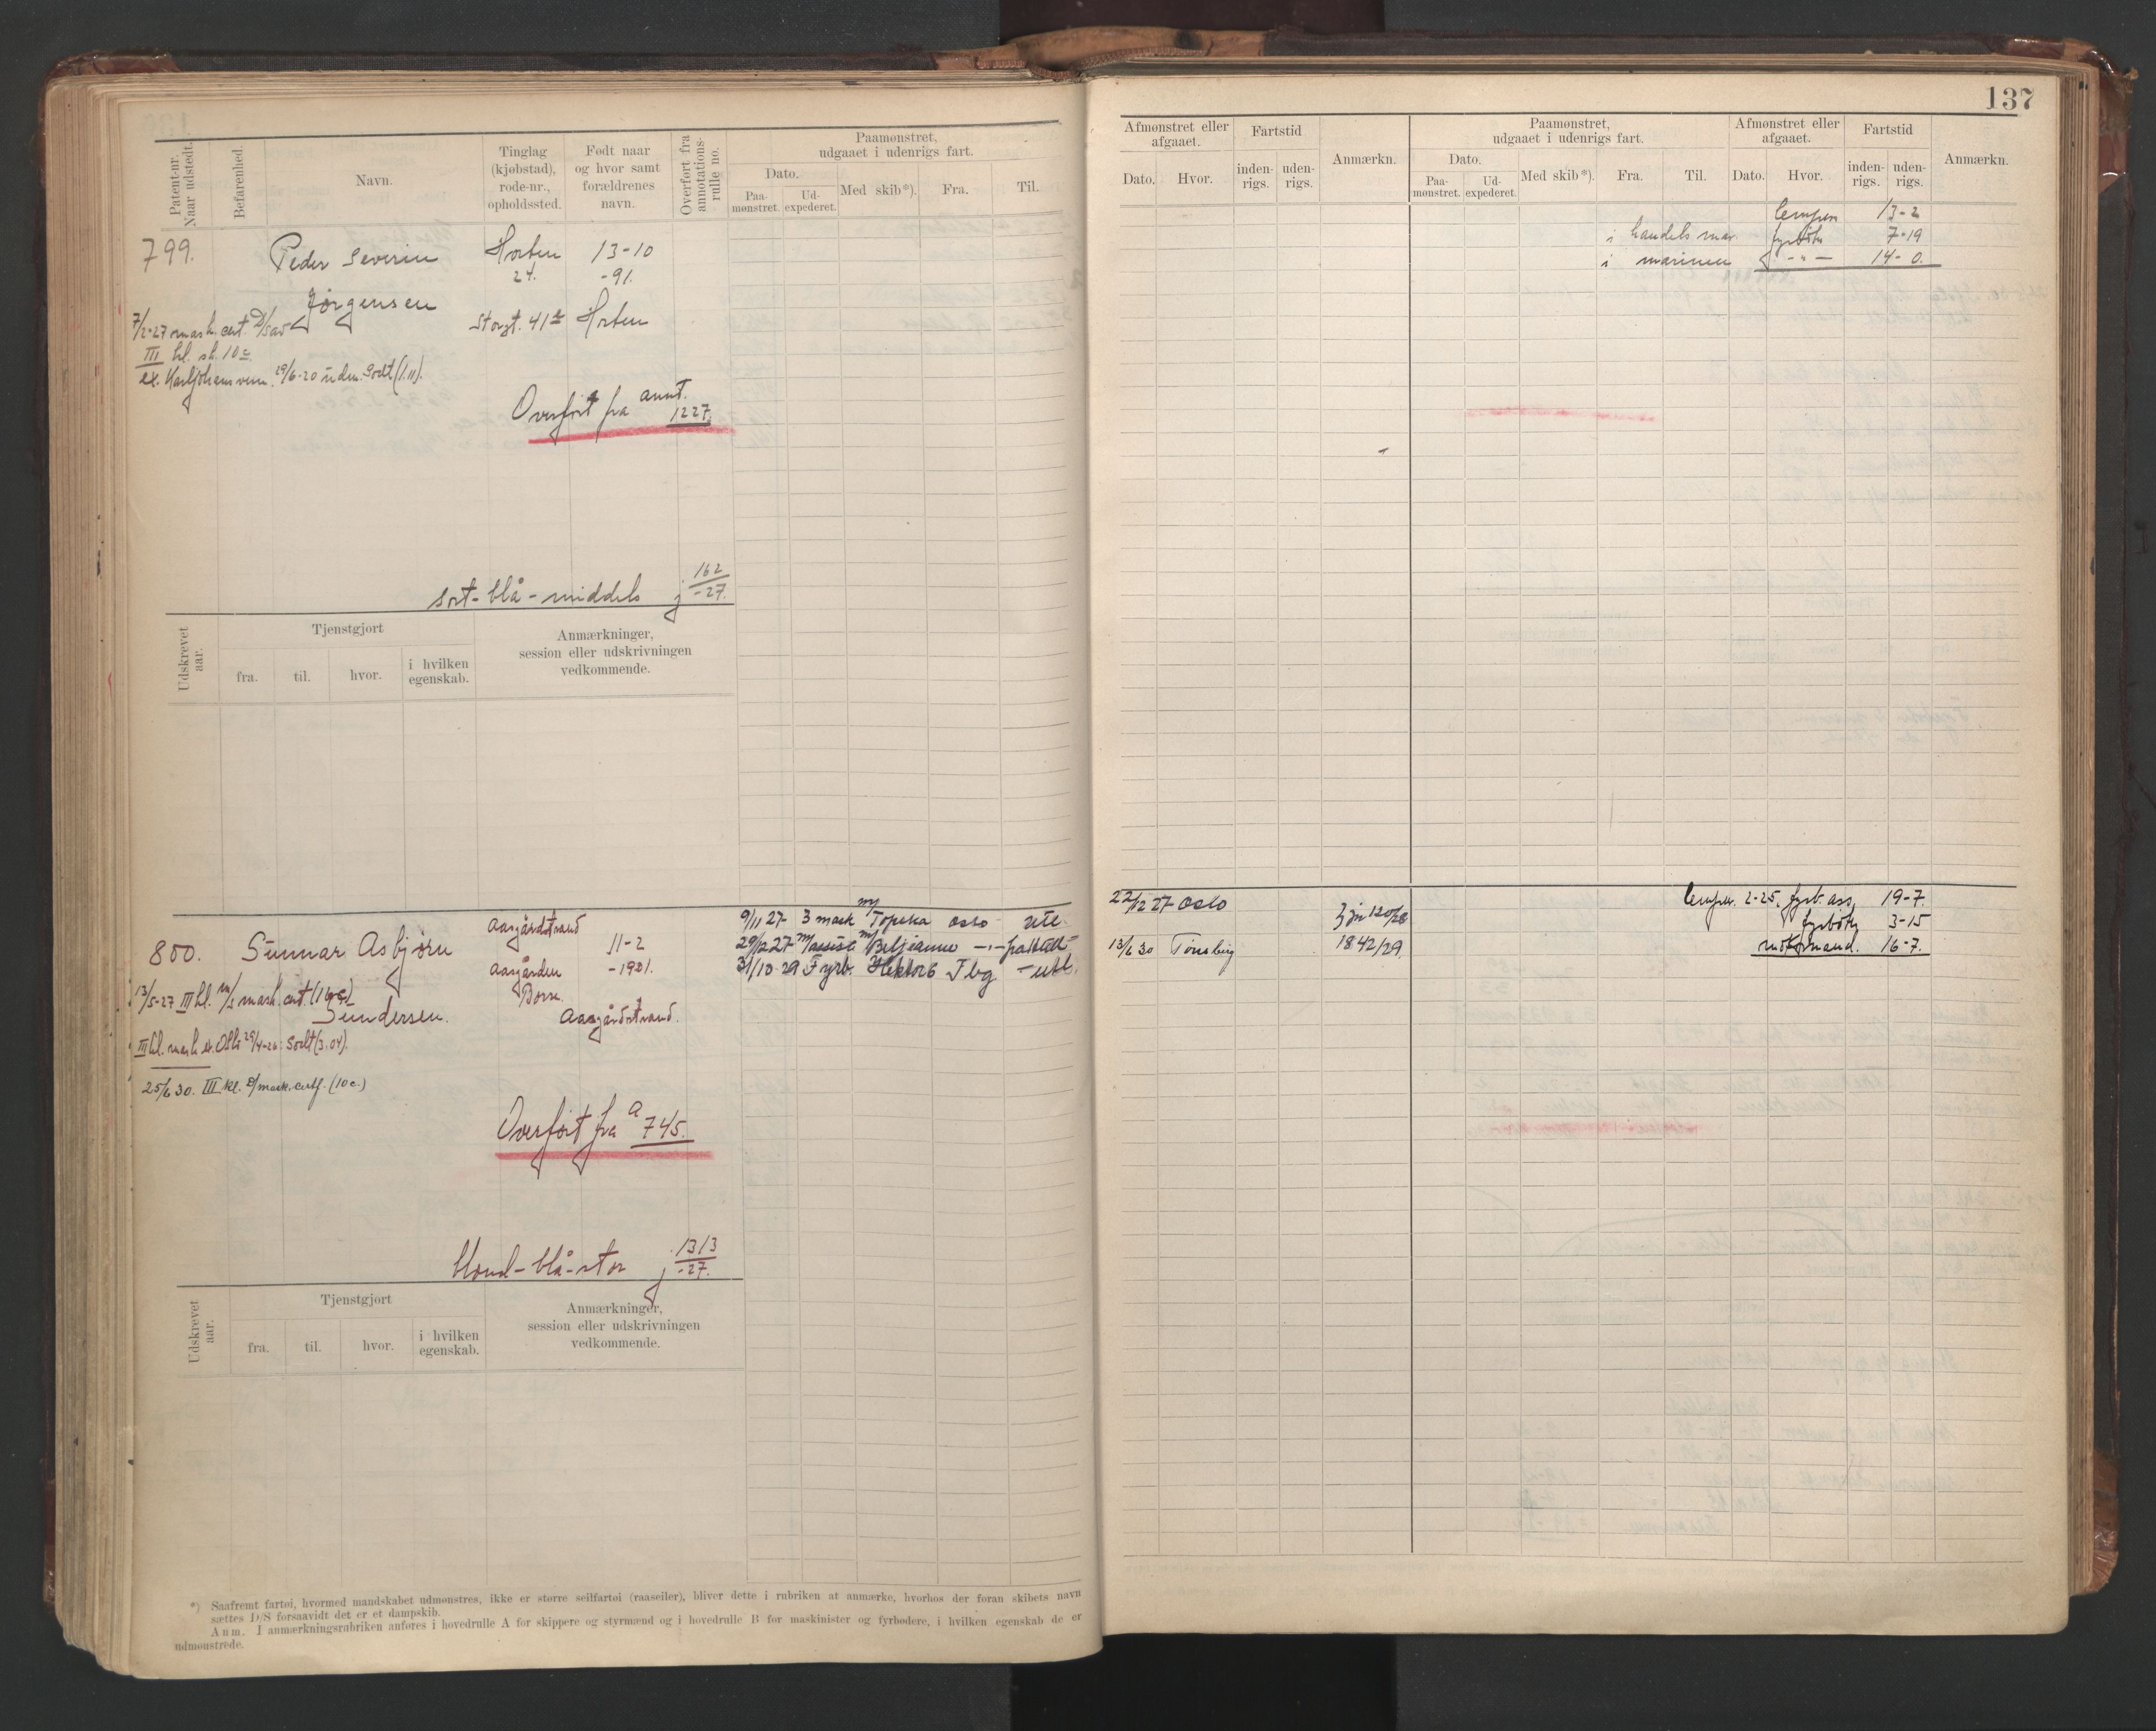 137
Patent-nr. Naar udstedt.
Befarenhed.
Navn.
Tinglag (kjøbstad), rode-nr., opholdssted.
Født naar og hvor samt forældrenes navn.
Overført fra annotations-rulle no.
Paamønstret, udgaaet i udenrigs fart.
Dato.
Paa-mønstret.
Ud-expederet.
Med skib*).
Fra.
Til.
Afmønstret eller afgaaet.
Dato.
Hvor.
Fartstid
inden-rigs.
uden-rigs.
Anmærkn.
Paamønstret, udgaaet i udenrigs fart.
Dato.
Paa-mønstret.
Ud-expederet.
Med skib*).
Fra.
Til.
Afmønstret eller afgaaet.
Dato.
Hvor.
Fartstid
inden-rigs.
uden-rigs.
Anmærkn.
13-2
i handels mar. fyrbøter 7-19
i marinen -"- 14-0.
799. Peder Severin Horten 13-10
24. -91.
Jørgensen Storgt. 41 Horten
7/2-27 mask. cert.
III kl. sk. 10
ex. Karljohansvern 29/6-20
Overført fra annt.
1227.
sort-blå-middels j 162
-27.
Udskrevet aar.
Tjenstgjort
fra.
til.
hvor.
i hvilken egenskab.
Anmærkninger, session eller udskrivningen vedkommende.
800. Gunnar Asbjørn Aasgårdstrand 11-2
Aasgården -1901.
Borre.
Gundersen. Aasgårdstrand.
13/5-27 III kl. m/s mask. cert.
III kl. mask. ex. Oslo 29/4-26
25/6 30. III kl. D/mask. certf. (10 c.)
9/11 27 3 mask m/ Topeka Oslo
29/12 27 m/ Beljeanne
31/10-29 Fyrb. Hektor 6 Tbg - utl.
22/12 27 Oslo j 120/28
13/6 30 Tønsberg 1842/29
2-25, fyrb. ass, 19-7.
fyrbøt. 3-15
motormand. 16-7.
Overført fra a 745.
blond-blå-stor j 1313
-27.
Udskrevet aar.
Tjenstgjort
fra.
til.
hvor.
i hvilken egenskab.
Anmærkninger, session eller udskrivningen vedkommende.
*) Saafremt fartøi, hvormed mandskabet udmønstres, ikke er større seilfartøi (raaseiler), bliver dette i rubriken at anmærke, hvorhos der foran skibets navn
sættes D/S forsaavidt det er et dampskib.
Anm. I anmærkningsrubriken anføres i hovedrulle A for skippere og styrmænd og i hovedrulle B for maskinister og fyrbødere, i hvilken egenskab de er
udmønstrede.